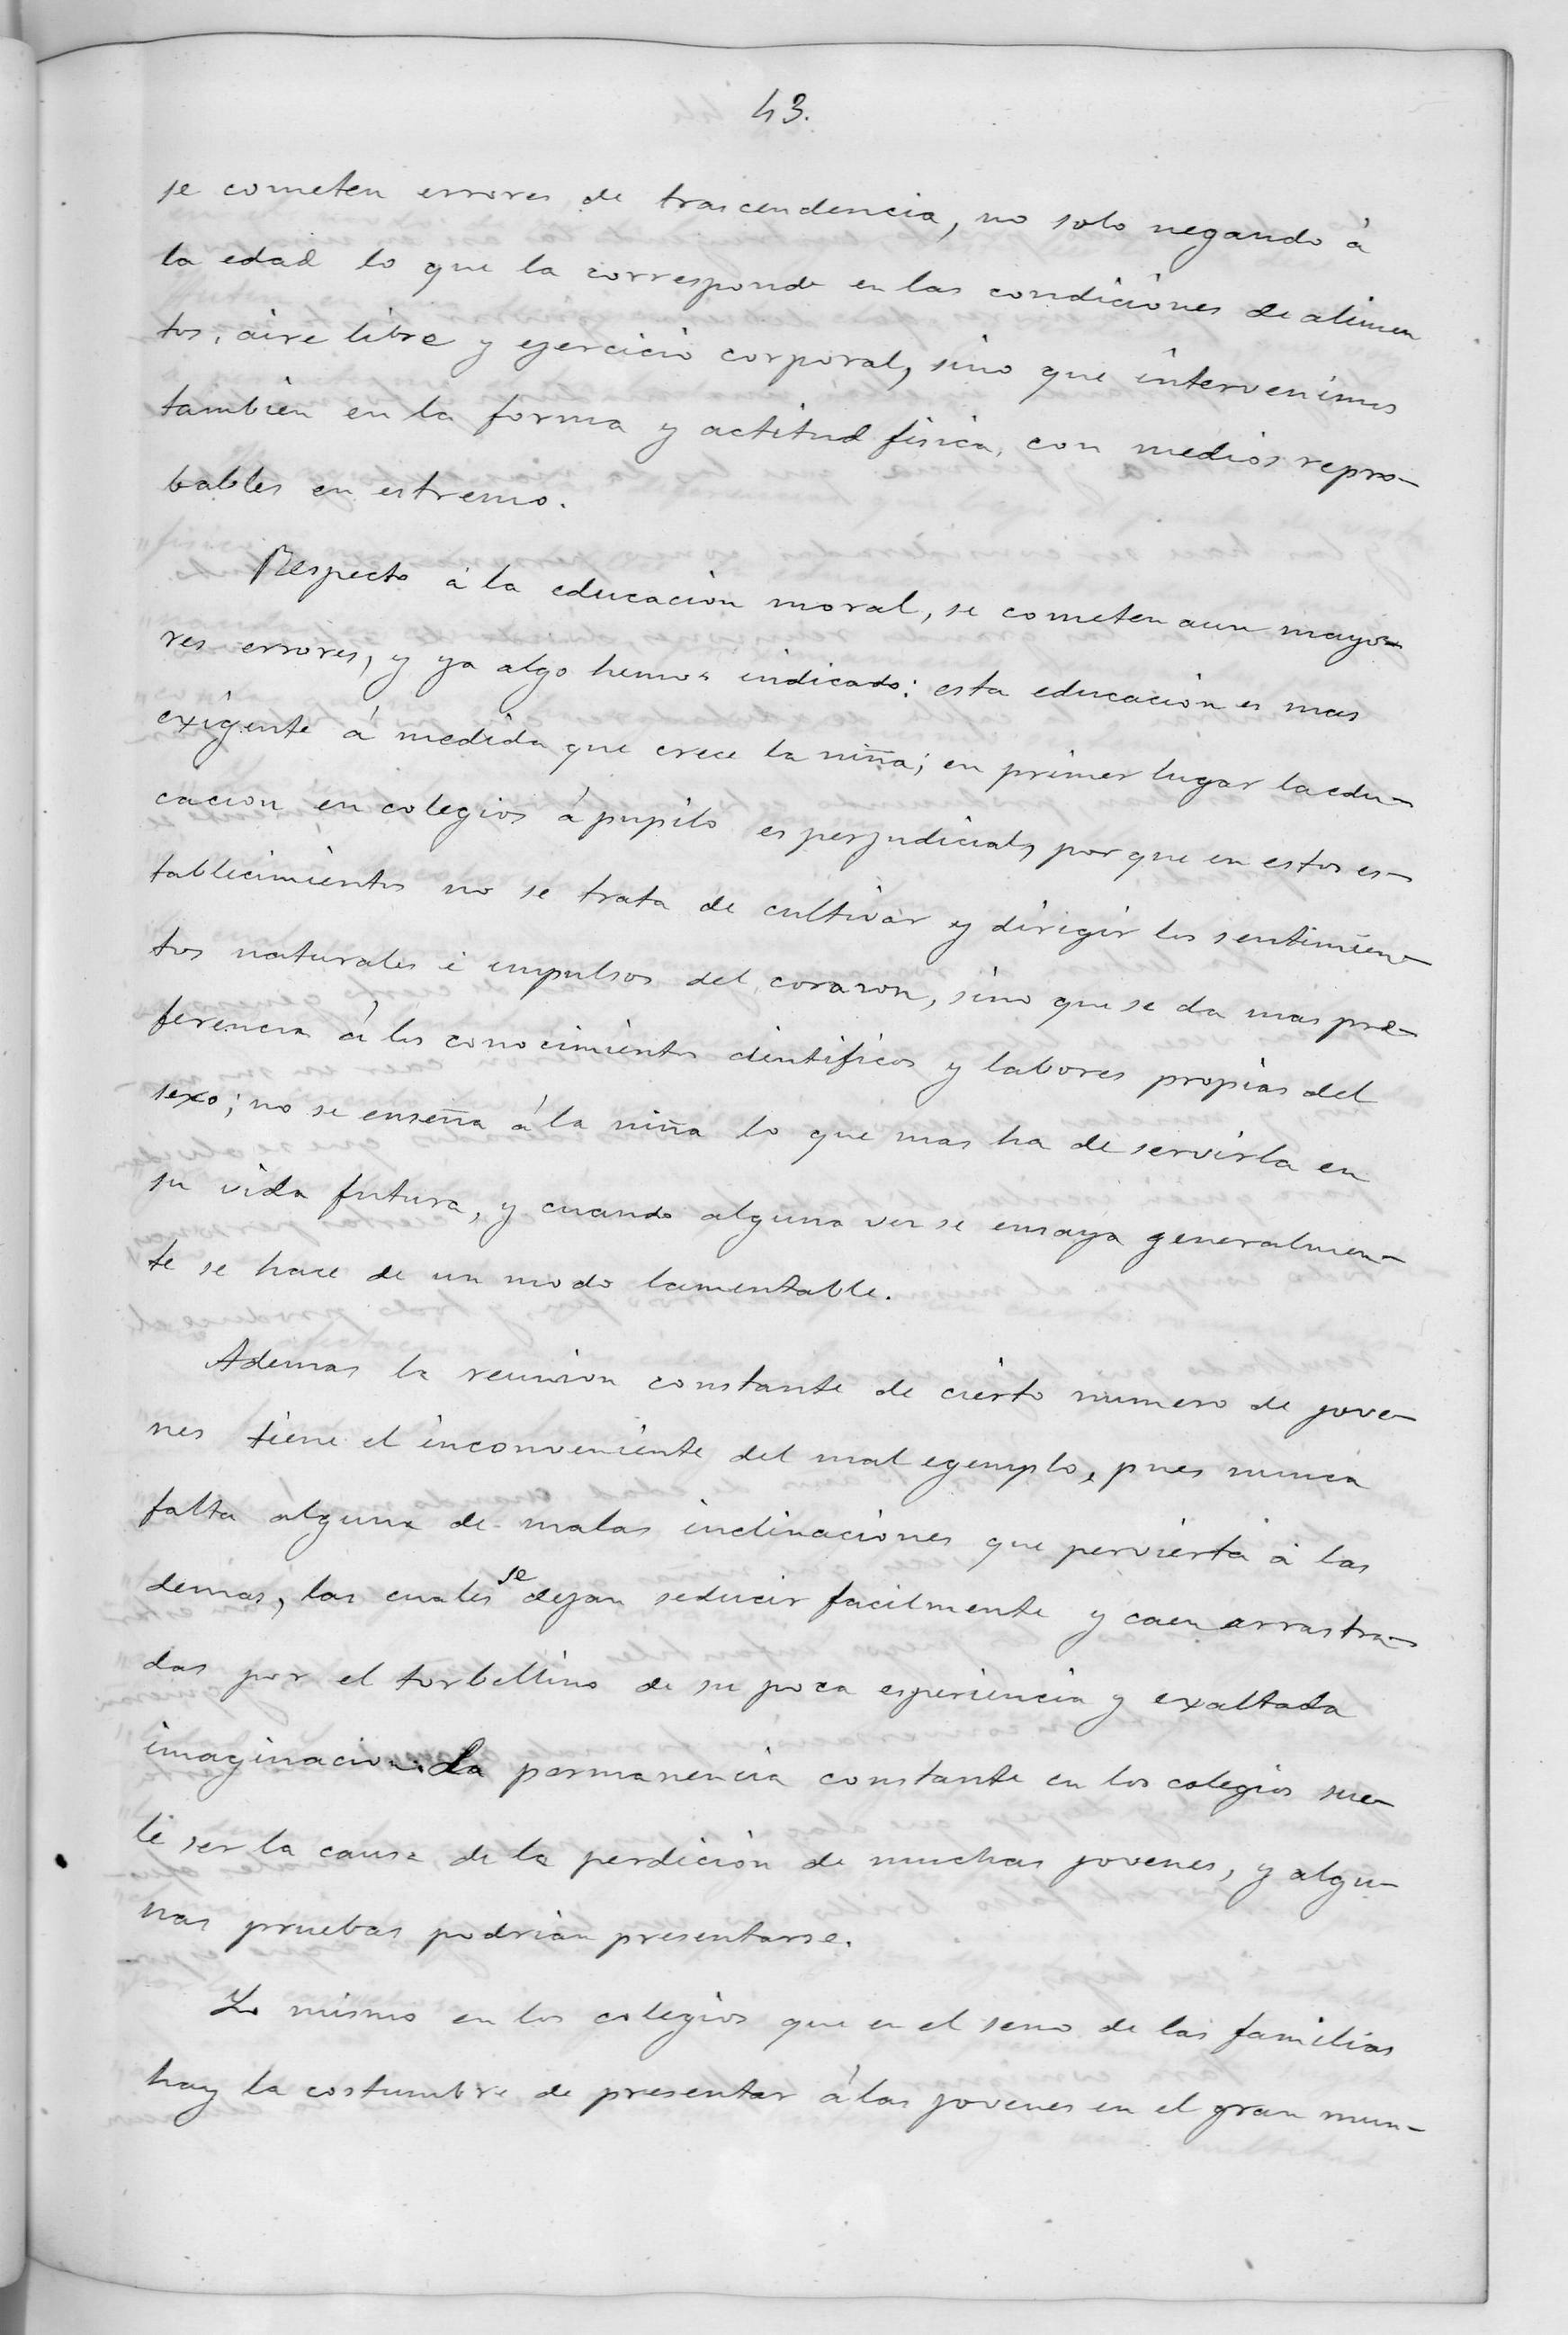 43.
se cometen errores de trascendencia, no solo negando á
la edad lo que la corresponde en las condiciones de alimen
tos, aire libre y egercicio corporal, sino que intervenimos
tambien en la forma y actitud fisica, con medios repro-
bables en estremo.
Respecto á la educacion moral, se cometen aun mayo-
res errores, y ya algo hemos indicado: esta educacion es mas
exigente á medida que crece la niña; en primer lugar la edu-
cacion en colegios á pupilo es perjudicial, por que en estos es-
tablecimientos no se trata de cultivar y dirigir los sentimien-
tos naturales é impulsos del corazon, sino que se da mas pre-
ferencia á los conocimientos cientificos y labores propias del
sexo; no se enseña á la niña lo que mas ha de servirla en
su vida futura, y cuando alguna vez se ensaya generalmen-
te se hace de un modo lamentable.
Ademas la reunion constante de cierto numero de jove-
nes tiene el inconveniente del mal egemplo, pues nunca
falta alguna de malas inclinaciones que pervierta á las
demas, las cuales se dejan seducir facilmente y caen arrastra-
das por el torbellino de su poca esperiencia y exaltada
imaginacion. La permanencia constante en los colegios sue-
le ser la causa de la perdicion de muchas jovenes, y algu-
nas pruebas podrian presentarse.
Lo mismo en los colegios que en el seno de las familias
hay la costumbre de presentar á las jovenes en el gran mun-